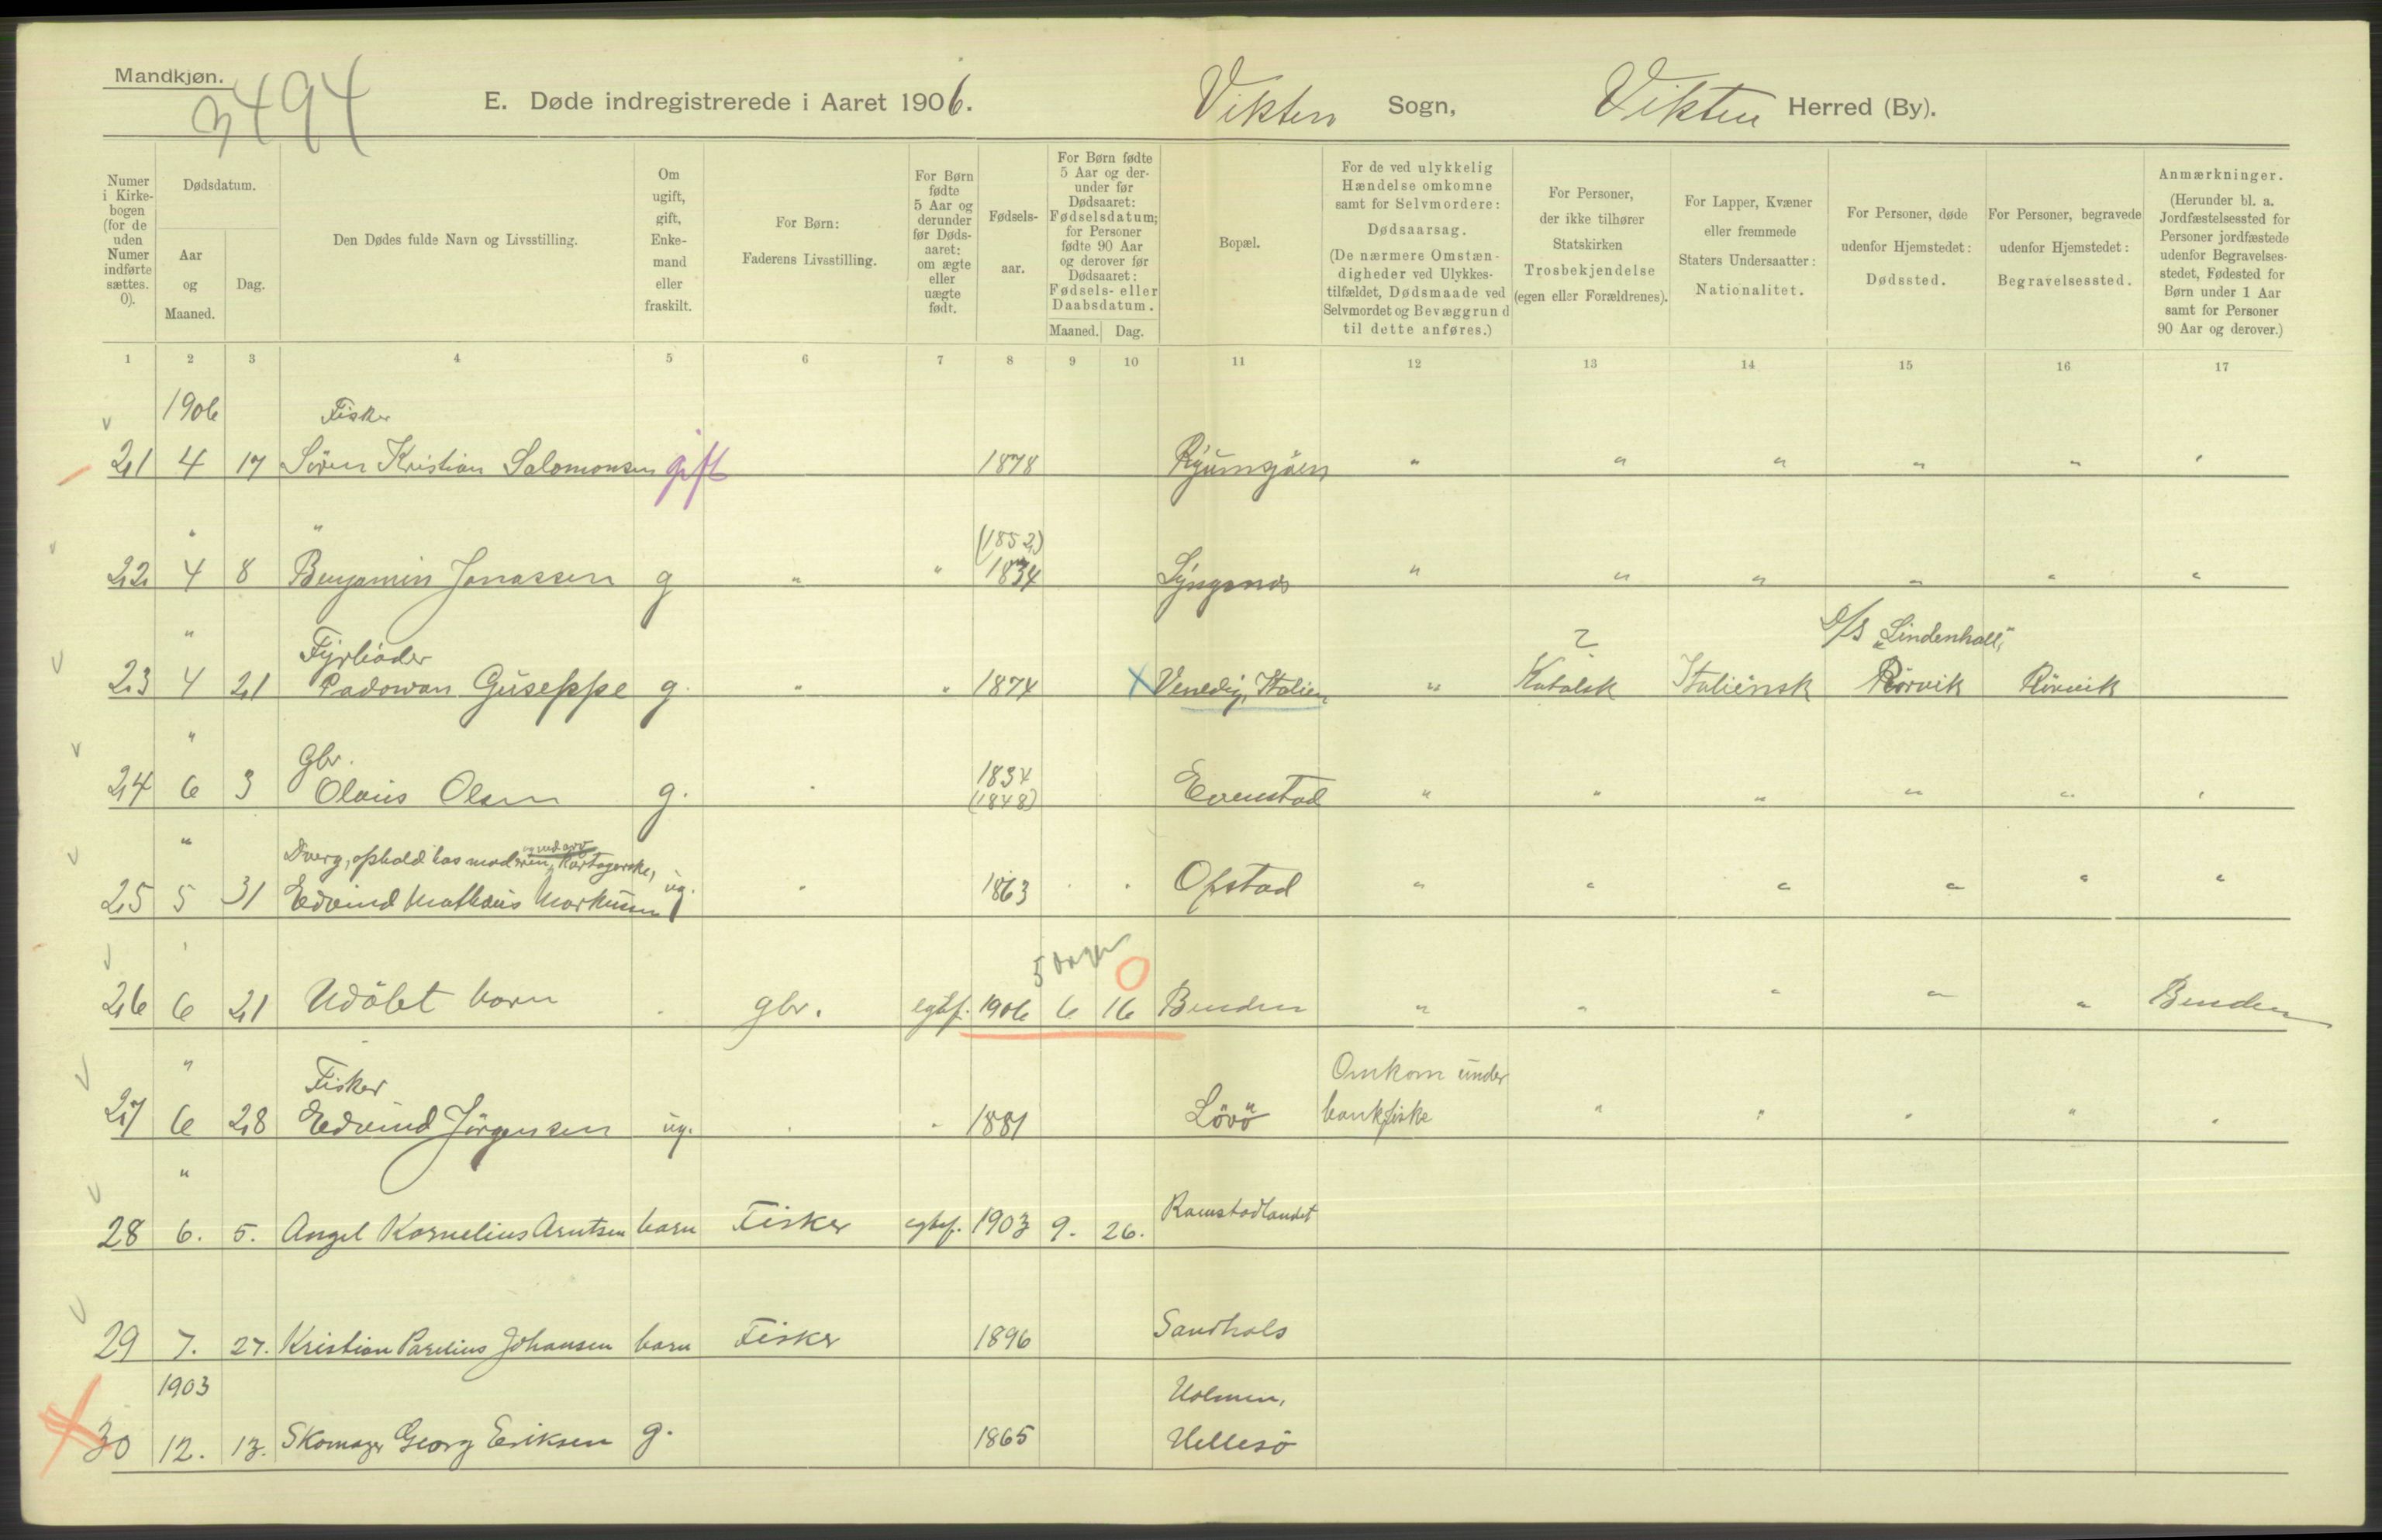 Mandkjøn.
3494
E. Døde indregistrerede i Aaret 1906.
Vikten Sogn,
Vikten Herred (By).
Numer i Kirkebogen (for de uden Numer indførte sættes. 0).
Dødsdatum.
Aar og Maaned.
Dag.
Den Dødes fulde Navn og Livsstilling.
Om ugift, gift, Enkemand eller fraskilt.
For Børn:
Faderens Livsstilling.
For Børn fødte 5 Aar og derunder før Dødsaaret: om ægte eller uægte født.
Fødselsaar.
For Børn fødte 5 Aar og derunder før Dødsaaret: Fødselsdatum; for Personer fødte 90 Aar og derover før Dødsaaret: Fødsels- eller Daabsdatum.
Maaned. Dag.
Bopæl.
For de ved ulykkelig Hændelse omkomne samt for Selvmordere:
Dødsaarsag.
(De nærmere Omstændigheder ved Ulykkestilfældet, Dødsmaade ved Selvmordet og Bevæggrund til dette anføres.)
For Personer, der ikke tilhører Statskirken
Trosbekjendelse
(egen eller Forældrenes).
For Lapper, Kvæner eller fremmede Staters Undersaatter:
Nationalitet.
For Personer, døde udenfor Hjemstedet:
Dødssted.
For Personer, begravede udenfor Hjemstedet:
Begravelsessted.
Anmærkninger.
(Herunder bl. a. Jordfæstelsessted for Personer jordfæstede udenfor Begravelsesstedet, Fødested for Børn under 1 Aar samt for Personer 90 Aar og derover.)
1 2 3 4 5 6 7 8 9 10 11 12 13 14 15 16 17
1906 Fisker
21 4 17 Søren Kristian Salomonsen gift 1878 " " " " " "
" " (1852)
22 4 8 Benjamin Jonassen g " " 1834 " " " " " "
" Fyrbøder ? D/S "Lindenhall",
23 4 21 Padowan Guseppe g. " " 1874 X Venedig, Italien " Katolsk Italiensk Rörvik Rörvik
" Gbr. 1834
24 6 3 Olaus Olsen g. " (1848) Evenstad " " " " " "
" Dverg, ophold hos moderen,
25 5 31 Edvind Mathæus Markussen ug. " 1863 Ofstad " " " " " "
" 5 dager 0
26 6 21 Udöbt barn gbr. egtef. 1906 6 16 Benden " " " " " Benden
" Fisker Omkom under
27 6 28 Edvind Jörgensen ug. " " 1881 Lövö bankfiske " " " " "
"
28 6. 5. Angel Kornelius Arntsen barn Fisker egtef. 1903 9. 26. Ramstadlandet
29 7. 27. Kristian Parelius Johansen barn Fisker 1896 Sandhals
1903 Holmen,
30 12. 13. Skomager Georg Eriksen g. 1865 Hellesö